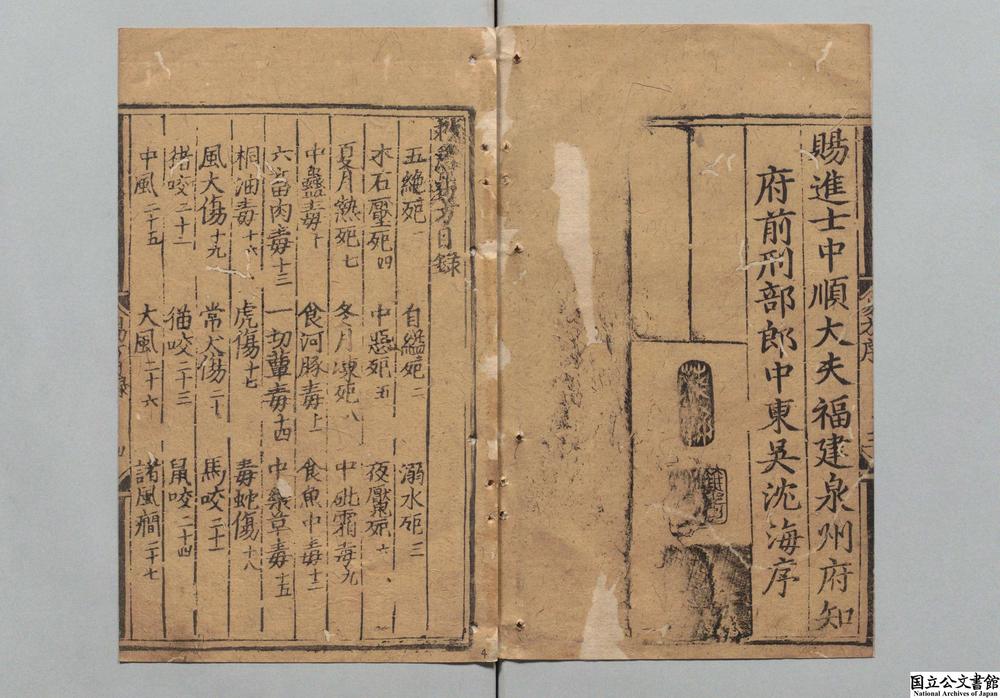 賜進士中順大夫福建泉州府知
府前刑部郎中東吳沈海序
救急易方目録
五絶死一 自縊死二 溺水死三
木石壓死四 中惡死五 夜魘死六
夏月熱死七 冬月凍死八 中砒霜毒九
中蠱毒十 食河豚毒十一 食魚中毒十二
六畜肉毒十三 一切蕈毒十四 中藥草毒十五
桐油毒十六 虎傷十七 毒蛇傷十八
風犬傷十九 常犬傷二十 馬咬二十一
猪咬二十二 猫咬二十三 鼠咬二十四
中風二十五 大風二十六 諸風癎二十七
4
国立公文書館
National Archives of Japan